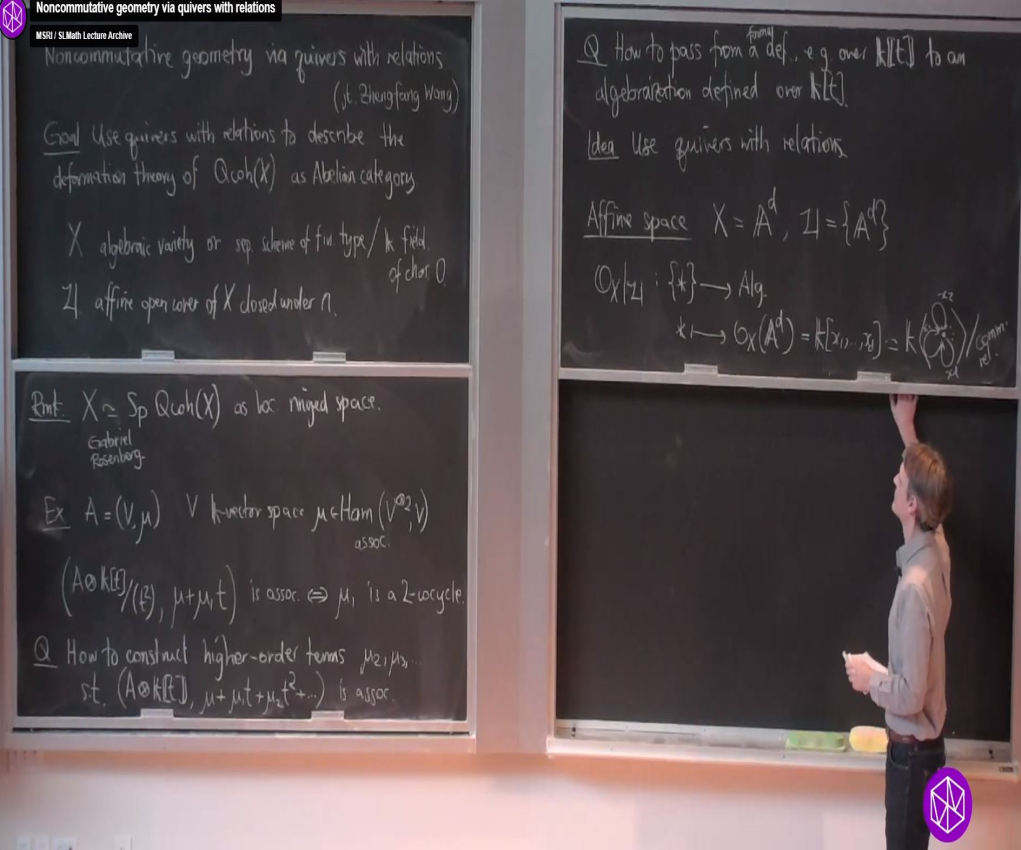 Noncommutative geometry via quivers with relations
MSRI / SLMath Lecture Archive
Noncommutative geometry via quivers with relations
(jt. Zhengfang Wang)
Goal Use quivers with relations to describe the
deformation theory of Qcoh(X) as Abelian category
X algebraic variety or sep. scheme of fin. type / k field
of char. 0
U affine open cover of X closed under ∩.
Rmk. X ≃ Sp Qcoh(X) as loc. ringed space.
Gabriel
Rosenberg.
Ex A = (V, μ) V k-vector space μ ∈ Hom (V^{⊗2}, V)
assoc.
(A⊗k[t]/(t²), μ+μ₁t) is assoc. ⇔ μ₁ is a 2-cocycle.
Q How to construct higher-order terms μ₂, μ₃, ...
s.t. (A⊗k[[t]], μ+μ₁t+μ₂t²+...) is assoc.
Q How to pass from a formal def., e.g. over k[[t]] to an
algebraization defined over k[t].
Idea Use quivers with relations
Affine space X = A^d, U = {A^d}
O_X|_U : {*} → Alg.
* ↦ O_X(A^d) = k[x₁,...,x_d] = k⟨ x₂ x₁ ⟩/comm.
rel.